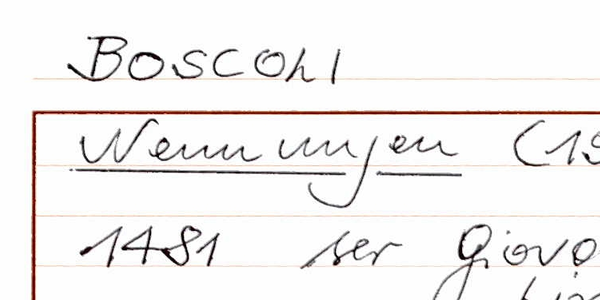 BOSCOLI
Nennungen (15
1481 ser Giovo